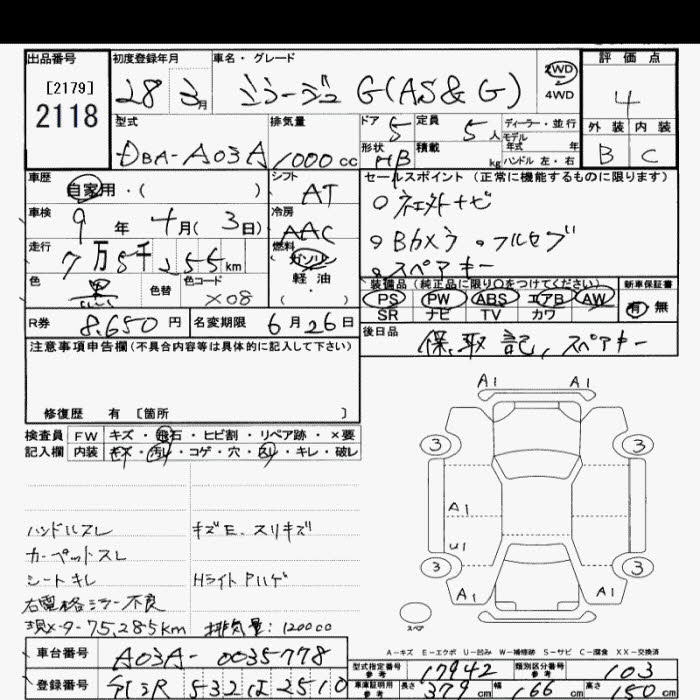 出品番号
[2179]
2118
初度登録年月
28 3月
車名・グレード
ミラージュ G(AS&G)
2WD
4WD
評価点
4
外装 内装
B C
型式
DBA-A03A
排気量
1000cc
ドア 5
定員 5人
ディーラー・並行
モデル
年式 年
形状 HB
積載 kg
ハンドル 左・右
車歴
自家用・( )
シフト
AT
セールスポイント (正常に機能するものに限ります)
○ 社外ナビ
○ Bカメラ ○フルセグ
○スペアキー
車検
9年 4月( 3日)
冷房
AAC
走行
7万5千255km
燃料
ガソリン
軽油
・( )
色
黒
色替
色コード
X08
装備品 (純正品に限り○をつけてください)
PS PW ABS エアB AW
SR ナビ TV カワ
新車保証書
有 無
R券 8,650円
名変期限 6月26日
後日品
保, 取 記, スペアキー
注意事項申告欄(不具合内容等は具体的に記入して下さい)
修復歴 有 [箇所 ]
検査員 FW キズ・飛石・ヒビ割・リペア跡・×要
記入欄 内装 キズ・汚レ・コゲ・穴・スレ・キレ・破レ
A1 A1
3 3
A1
U1
3 3
A1 A1
スペア
ハンドルスレ
キズE、スリキズ
カーペットスレ
シートキレ
Hライト Pハゲ
右電格ミラー不良
現メータ75,285km 排気量:1200cc
A-キズ E-エクボ U-凹み W-補修跡 S-サビ C-腐食 XX-交換済
車台番号 A03A-0035778
型式指定番号 参考 17942
類別区分番号 参考 103
登録番号 532 は 2510
車庫証明用 参考 長さ 379cm 幅 166cm 高さ 150cm